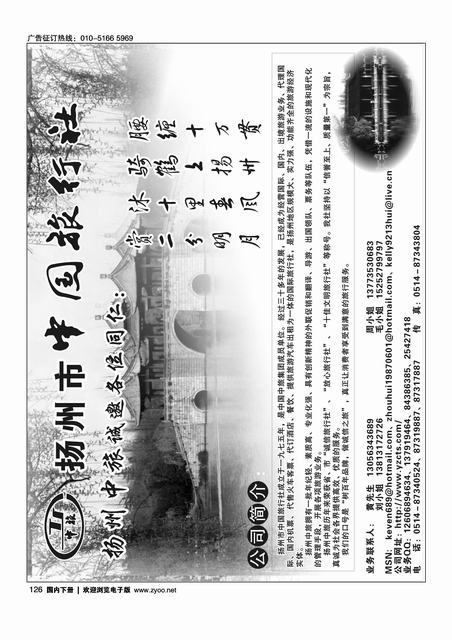 广告征订热线：010-5166 5969
扬州市中国旅行社
扬州中旅诚邀各位同仁：
腰缠十万贯
骑鹤上扬州
沐十里春风
赏二分明月
公司简介：
扬州市中国旅行社成立于一九七五年，是中国中旅集团成员单位。经过三十多年的发展，已经成为经营国际、国内、出境旅游业务、代理国
际、国内机票、代售火车客票、代订酒店、餐饮、提供旅游汽车出租为一体的国际旅行社，是扬州地区规模大、实力强、功能齐全的旅游经济
实体。
扬州中旅拥有一批年纪轻、素质高、专业化强、具有创新精神的外联促销和翻译、导游、出国领队、票务等队伍，凭借一流的设施和现代化
的管理手段，开展各项旅游业务。
扬州中旅历年来荣获省、市“诚信旅行社”、“放心旅行社”、“十佳文明旅行社”等称号。我社坚持以“信誉至上、质量第一”为宗旨，
真诚为社会各界提供高效、优质的服务。
我们的口号是“树百年品牌，做诚信之旅”，真正让消费者享受到满意的旅行服务。
业务联系人： 黄先生 13056343689 周小姐 13773530683
刘小姐 13813172726 毛小姐 15252799797
MSN：keven689@hotmail.com、zhouhui19870601@hotmail.com、kelly9213hui@live.cn
公司网址：http://www.yzcts.com/
业务QQ：1260694634、137919464、84386385、25427418
电 话：0514-87340524、87319887、87317887 传 真：0514-87343804
126 国内下册 | 欢迎浏览电子版 www.zyoo.net